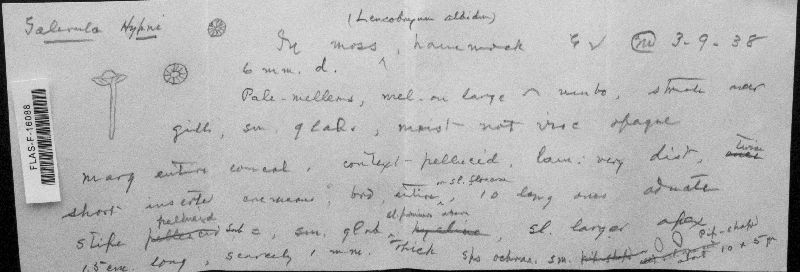 Galerula Hypni
(Leucobryum albidum)
In moss, hammock G ✓ M 3-9-38
6 mm. d.
Pale-melleus, mel. on large umbo, striate over
gills, sm. glab, moist not visc opaque
marg entire concol, context-pellucid, lam: very dist, twice
short inserted, brd, entire, or sl. floccose 10 long ones adnate
stipe pellucid sm. glab, hyaline, sl. larger apex
1.5 cm. long, scarcely 1 mm. thick sps ochrac. sm. pip-shape 10 x 5 µ
FLAS-F-16088